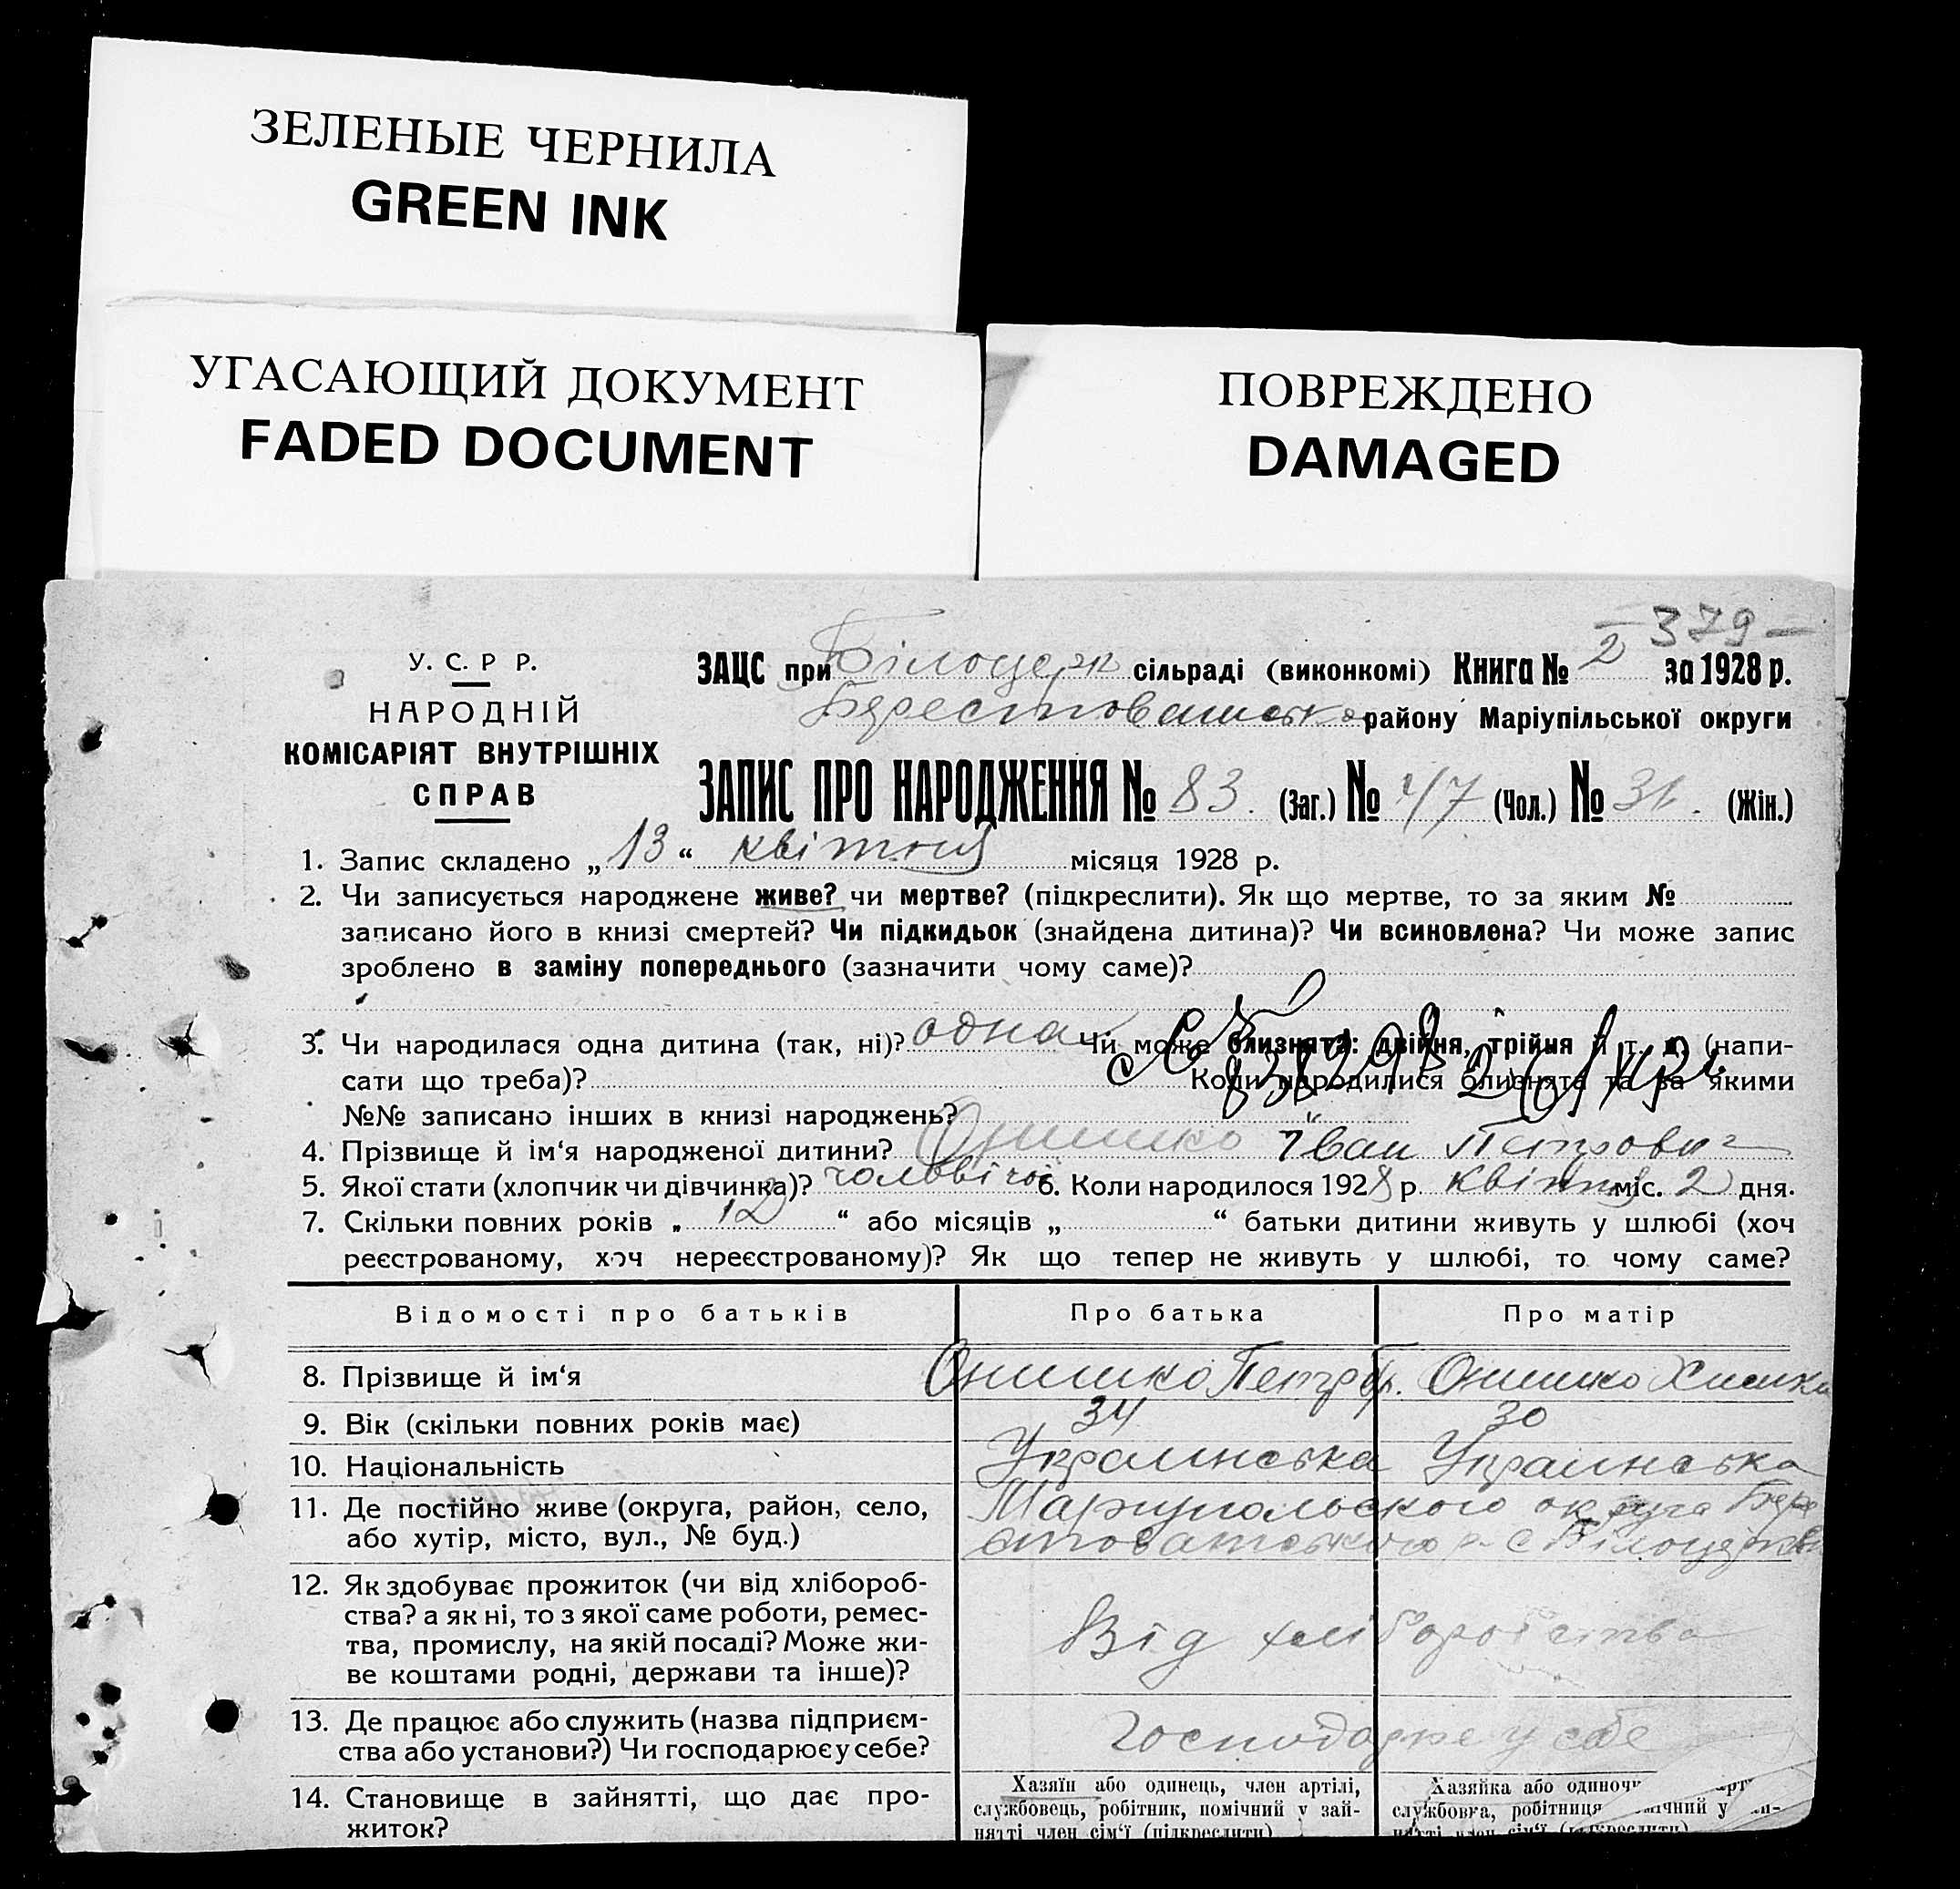 ЗЕЛЕНЫЕ ЧЕРНИЛА
GREEN INK
УГАСАЮЩИЙ ДОКУМЕНТ
FADED DOCUMENT
ПОВРЕЖДЕНО
DAMAGED
379 —
У. С. Р Р.
НАРОДНІЙ
КОМІСАРІЯТ ВНУТРІШНІХ
СПРАВ
ЗАЦС при Білоцерк сільраді (виконкомі) Книга № 2 за 1928 р.
району Маріупільської округи
ЗАПИС ПРО НАРОДЖЕННЯ № 83. (Заг.) № 47 (Чол.) № 31. (Жін.)
1. Запис складено „ 13 “ квітня місяця 1928 р.
2. Чи записується народжене живе? чи мертве? (підкреслити). Як що мертве, то за яким №
записано його в книзі смертей? Чи підкидьок (знайдена дитина)? Чи всиновлена? Чи може запис
зроблено в заміну попереднього (зазначити чому саме)?
3. Чи народилася одна дитина (так, ні)? одна Чи може близнята: двійня, трійня й т. д. (напи-
сати що треба)? Коли народилися близнята та за якими
№№ записано інших в книзі народжень?
4. Прізвище й ім‘я народженої дитини? Онишко Іван Петрович
5. Якої стати (хлопчик чи дівчинка)? чоловічої 6. Коли народилося 1928 р. квітня міс. 2 дня.
7. Скільки повних років „ 12 “ або місяців „ “ батьки дитини живуть у шлюбі (хоч
реєстрованому, хоч нереєстрованому)? Як що тепер не живуть у шлюбі, то чому саме?
Відомості про батьків Про батька Про матір
8. Прізвище й ім‘я Онишко Петро Гр. Онишко Химка
9. Вік (скільки повних років має) 34 30
10. Національність Украинська Украинська
11. Де постійно живе (округа, район, село, Мариупольского округа Бере
або хутір, місто, вул., № буд.) стоватського р. с Білоцерківк
12. Як здобуває прожиток (чи від хлібороб-
ства? а як ні, то з якої саме роботи, ремес-
тва, промислу, на якій посаді? Може жи- Від хліборобства
ве коштами родні, держави та інше)?
13. Де працює або служить (назва підприєм- Господарює у себе
ства або установи?) Чи господарює у себе?
14. Становище в зайнятті, що дає про-
житок?
Хазяїн або одинець, член артілі,
службовець, робітник, помічний у зай-
нятті член сім‘ї (підкреслити)
Хазяйка або одиноч
службовка, робітниця